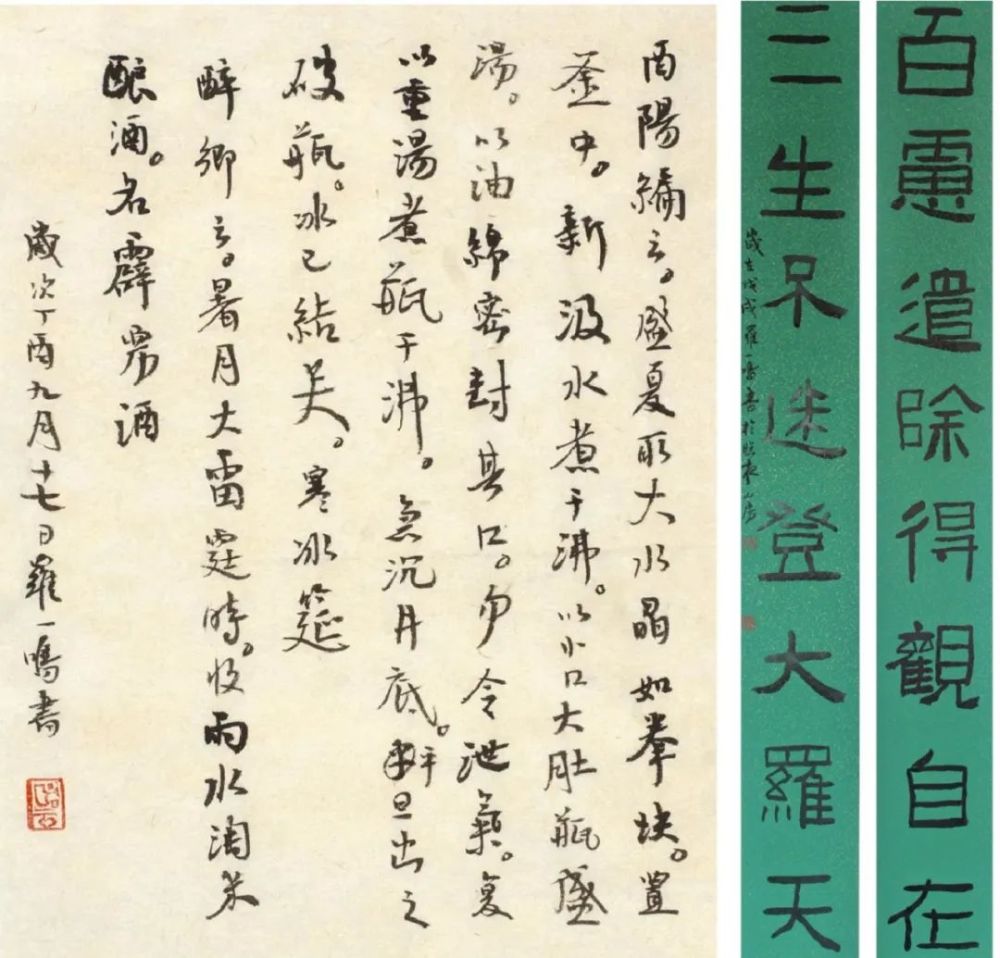 百慮遣除得觀自在
三生不迷登大羅天
歲在戊戌羅一鳴書於
酉陽編云。盛夏取大水晶如拳塊。置
釜中。新汲水煮千沸。以小口大肚瓶盛
湯。以油綿密封其口。勿令泄氣。复
以重湯煮瓶千沸。急沉井底。平旦出之
破瓶。冰已結矣。寒冰筵
醉鄉云。暑月大雷霆時。收雨水淘米
酿酒。名霹雳酒
歲次丁酉九月十七日羅一鳴書